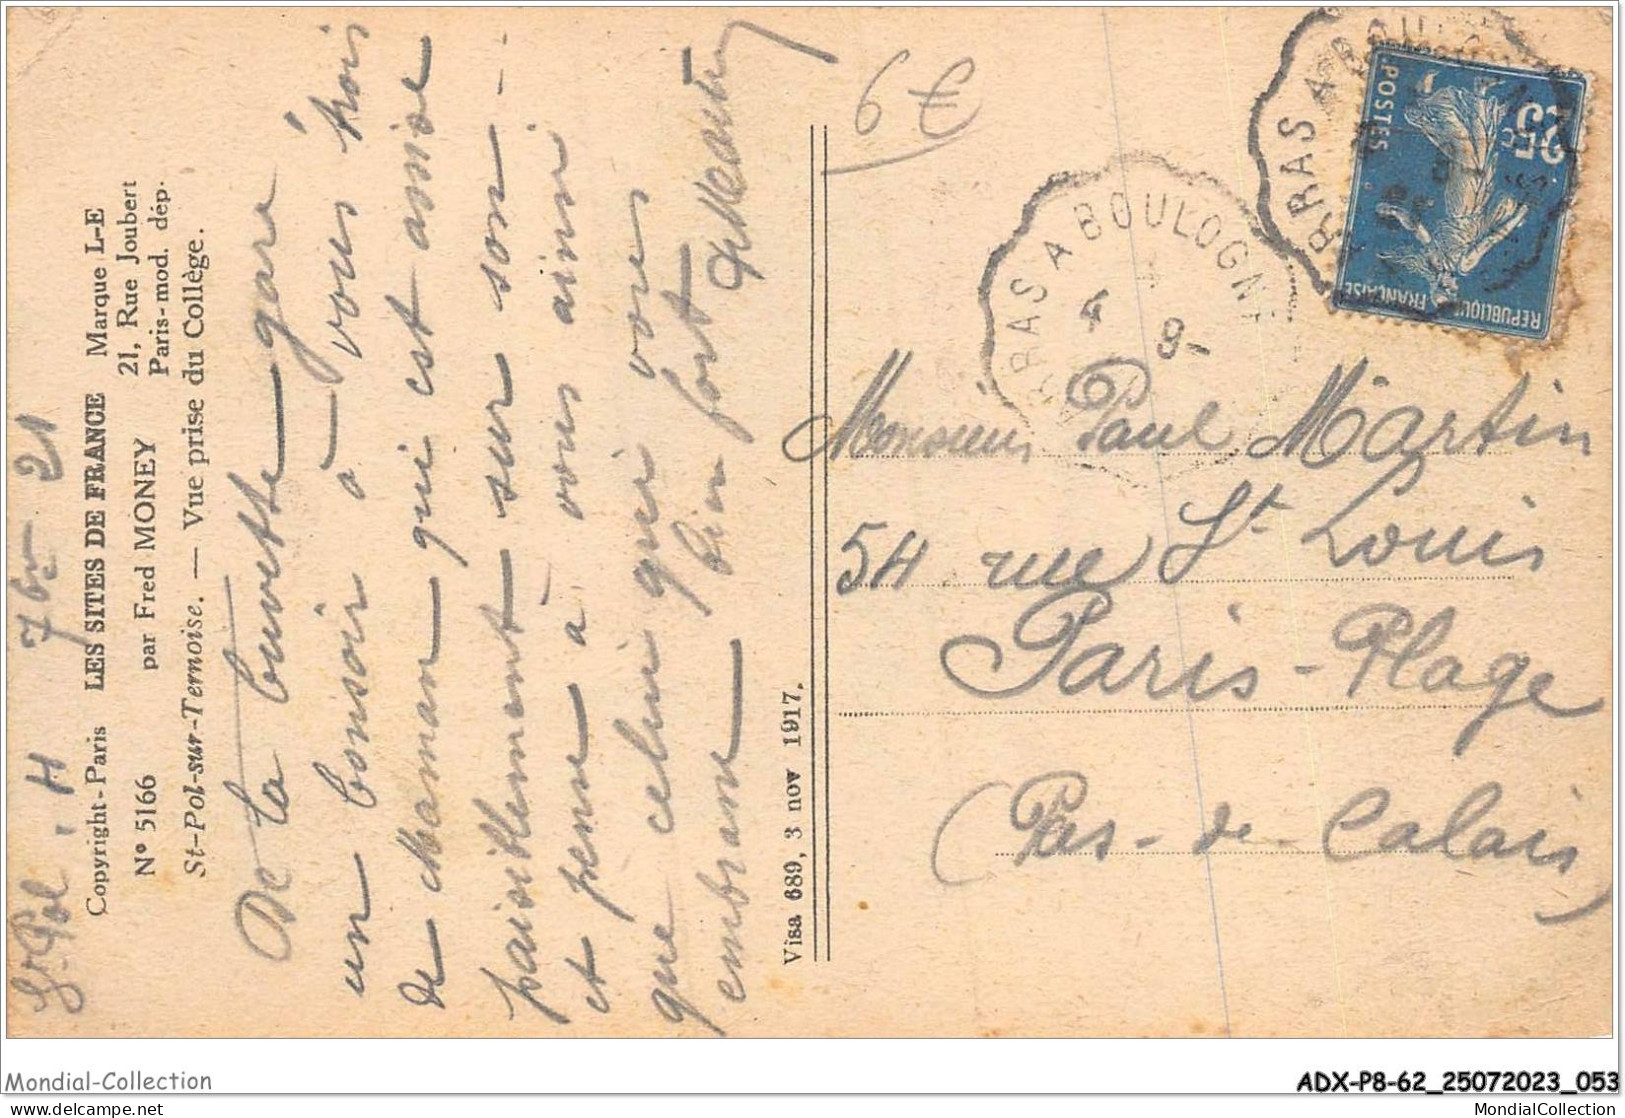 St Pol. 4 7bre 21
Copyright-Paris LES SITES DE FRANCE Marque L-E
N° 5166 par Fred MONEY 21, Rue Joubert
Paris-mod. dép.
St-Pol-sur-Ternoise. — Vue prise du Collège.
De la buvette gare
un bonsoir à vous trois
de maman qui est assise
paisiblement sur son
et pense à vous ainsi
que celui qui vous
embrasse bien fort
Visa 689, 3 nov 1917.
6 €
ARRAS A BOULOGNE
4 9-
ARRAS A BOU
POSTES
25c
REPUBLIQUE FRANÇAISE
Monsieur Paul Martin
54 rue St Louis
Paris-Plage
(Pas-de-Calais)
Mondial-Collection
ADX-P8-62_25072023_053
www.delcampe.net
MondialCollection